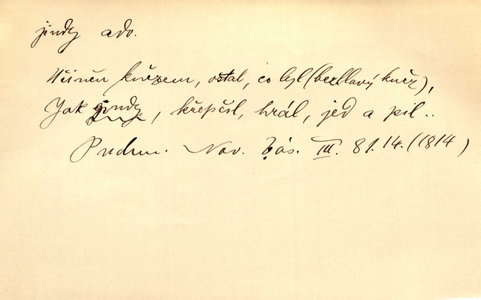 jindy adv.
Učiněn knězem, ostal, co byl (bezhlavý kněz),
Jak jindy, křepčil, hrál, jed a pil..
Puchm. Nov. bás. III. 81. 14. (1814)